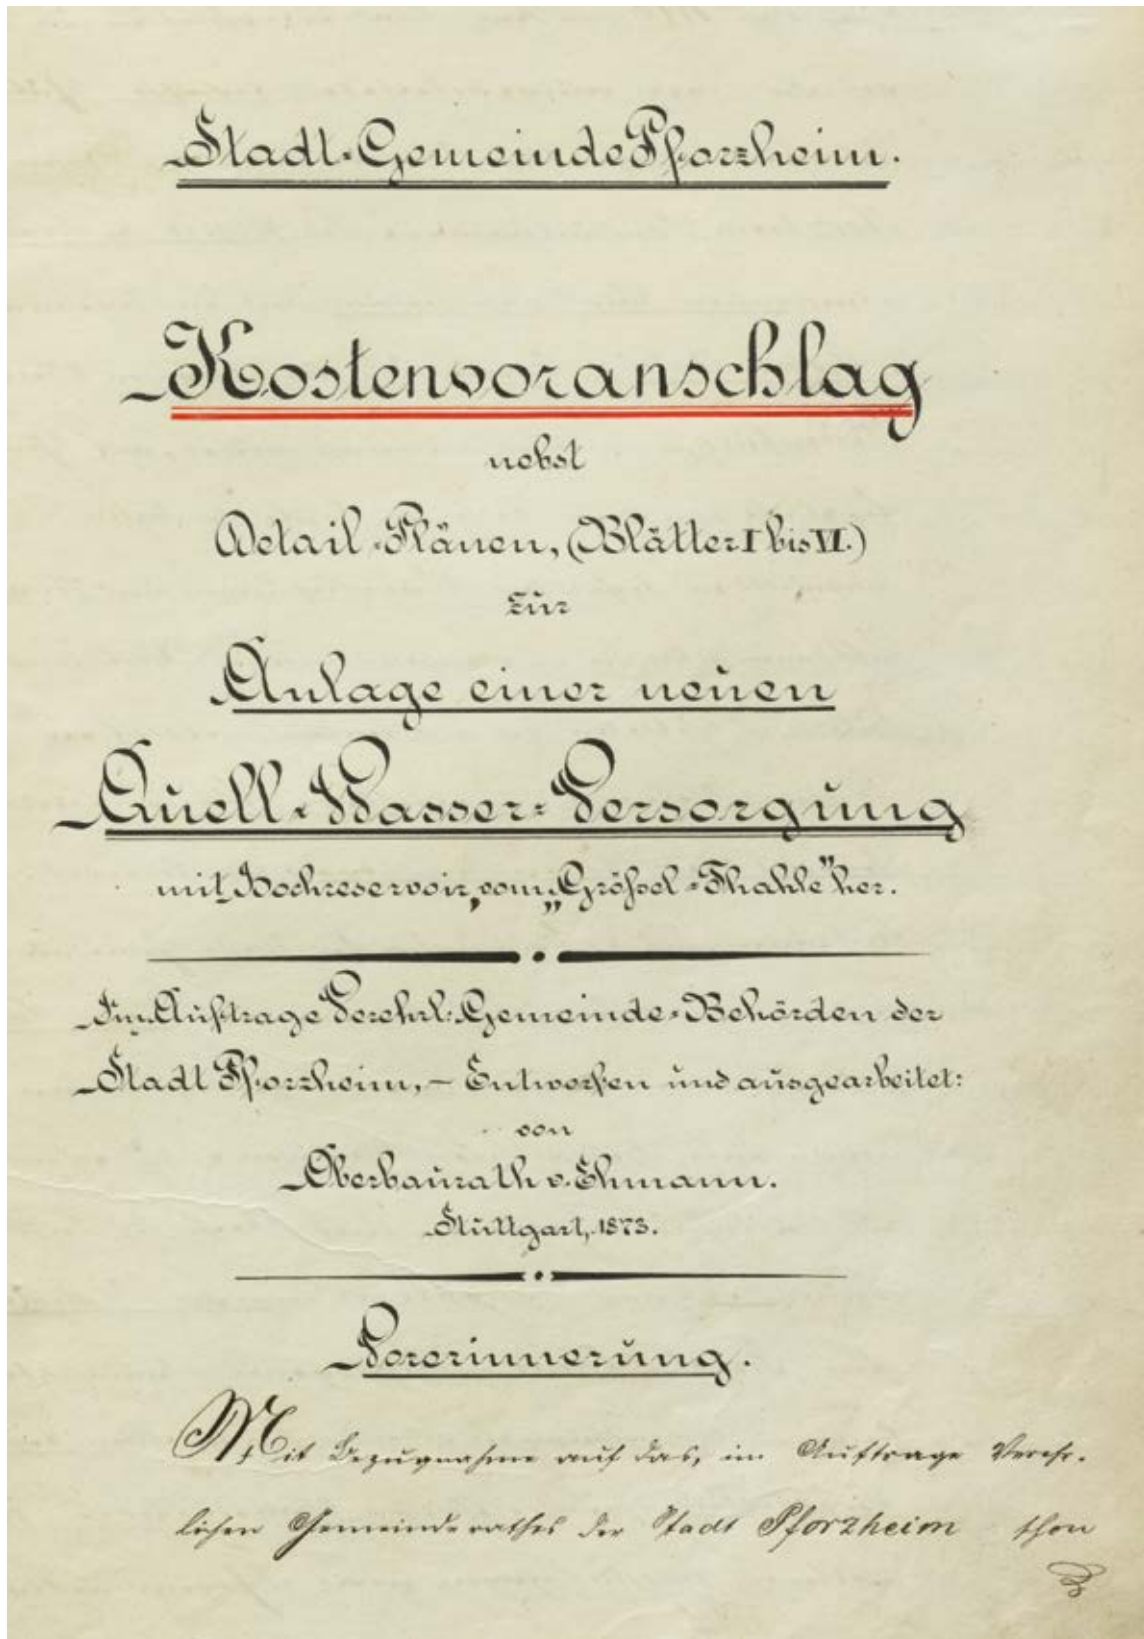 Stadt-Gemeinde Pforzheim.
Kostenvoranschlag
nebst
Detail-Plänen, (Blätter I bis VI.)
zur
Anlage einer neuen
Quell-Wasser-Versorgung
mit Hochreservoir, vom „Größel-Thahle" her.
Im Auftrage Verehrl: Gemeinde-Behörden der
Stadt Pforzheim, – Entworfen und ausgearbeitet:
von
Oberbaurath v. Ehmann.
Stuttgart, 1873.
Vorerinnerung.
Mit Bezugnahme auf das, im Auftrage Verehr-
lichen Gemeinderathes der Stadt Pforzheim schon